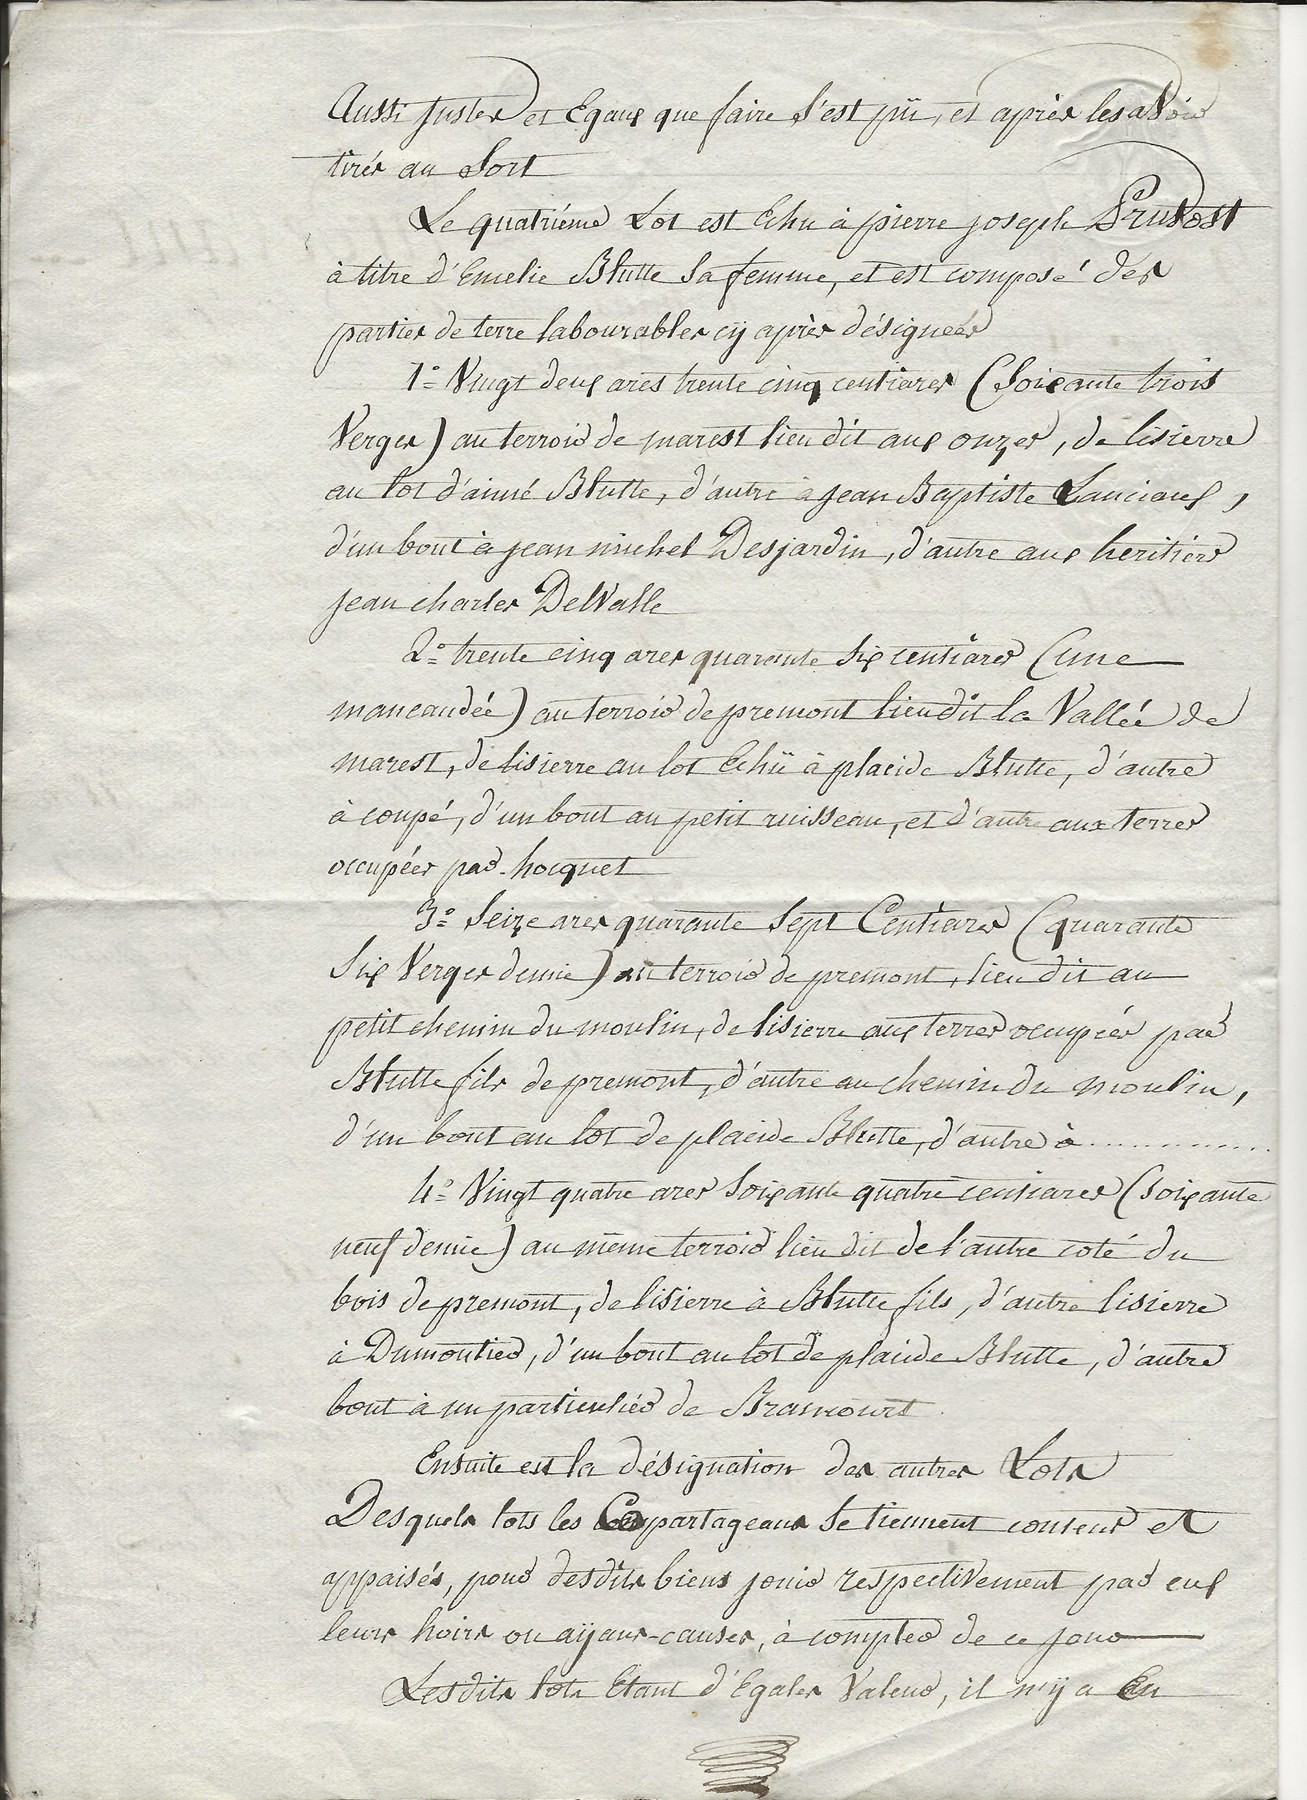 Aussi justes et Egaux que faire s'est pü, et après les avoir
tirés au Sort
Le quatriéme Lot est Echu à pierre joseph Pruvost
à titre d'Emelie Blutte sa femme, et est composé des
parties de terre labourables cÿ après désignées
1° Vingt deux ares trente cinq centiares (Soixante trois
Verges) au terroir de marest lieu dit aux onzes, de lisierre
au lot d'aimé Blutte, d'autre à jean Baptiste Lanciaux,
d'un bout à jean michel Desjardin, d'autre aux heritiers
jean charles Delvalle
2° trente cinq ares quarante six centiares (une
mancaudée) au terroir de premont lieu dit la Vallée de
marest, de lisierre au lot Echü à placide Blutte, d'autre
à coupé, d'un bout au petit ruisseau, et d'autre aux terres
occupées par hocquet
3° Seize ares quarante Sept Centiares (quarante
six Verges demie) au terroir de premont, lieu dit au
petit chemin du moulin, de lisierre aux terres occupées par
Blutte fils de premont, d'autre au chemin du moulin,
d'un bout au lot de placide Blutte, d'autre à ..............
4° Vingt quatre ares Soixante quatre centiares (soixante
neuf demie) au même terroir lieu dit de l'autre coté du
bois de premont, de lisierre à Blutte fils, d'autre lisierre
à Dumoutier, d'un bout au lot de placide Blutte, d'autre
bout à un particuliér de Brancourt
Ensuite est la désignation des autres Lots
Desquels lots les Copartageans se tiennent contens et
appaisés, pour desdits biens jouir respectivement par eux
leurs hoirs ou aÿans-causes, à compter de ce jour
Lesdits lots Etant d'Egales Valeur, il n'ÿ a En